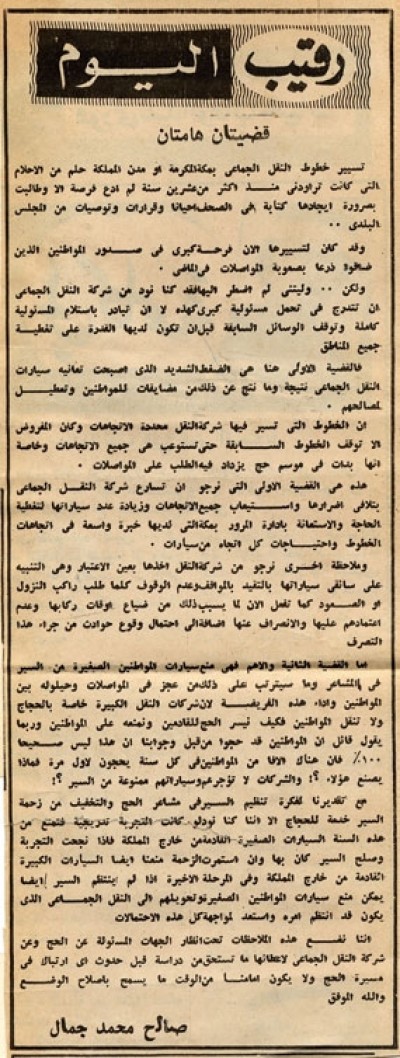 رقيب اليوم
قضيتان هامتان
تسيير خطوط النقل الجماعى بمكة المكرمة او مدن المملكة حلم من الاحلام
التى كانت تراودنى منذ اكثر من عشرين سنة لم ادع فرصة الا وطالبت
بضرورة ايجادها كتابة فى الصحف احيانا وقرارات وتوصيات من المجلس
البلدى ..
وقد كان لتسييرها الان فرحة كبرى فى صدور المواطنين الذين
ضاقوا ذرعا بصعوبة المواصلات فى الماضى .
ولكن .. وليتنى لم اضطر اليها فقد كنا نود من شركة النقل الجماعى
ان تتدرج فى تحمل مسئولية كبرى كهذه لا ان تبادر باستلام المسئولية
كاملة وتوقف الوسائل السابقة قبل ان تكون لديها القدرة على تغطية
جميع المناطق
فالقضية الاولى هنا هى الضغط الشديد الذى اصبحت تعانيه سيارات
النقل الجماعى نتيجة وما نتج عن ذلك من مضايقات للمواطنين وتعطيل
لمصالحهم .
ان الخطوط التى تسير فيها شركة النقل محددة الاتجاهات وكان المفروض
الا توقف الخطوط السابقة حتى تستوعب هى جميع الاتجاهات وخاصة
انها بدات فى موسم حج يزداد فيه الطلب على المواصلات .
هذه هى القضية الاولى التى نرجو ان تسارع شركة النقل الجماعى
بتلافى اضرارها واستيعاب جميع الاتجاهات وزيادة عدد سياراتها لتغطية
الحاجة والاستعانة بادارة المرور بمكة التى لديها خبرة واسعة فى اتجاهات
الخطوط واحتياجات كل اتجاه من سيارات .
وملاحظة اخرى نرجو من شركة النقل اخذها بعين الاعتبار وهى التنبيه
على سائقى سياراتها بالتقيد بالمواقف وعدم الوقوف كلما طلب راكب النزول
او الصعود كما تفعل الان لما يسبب ذلك من ضياع اوقات ركابها وعدم
اعتمادهم عليها والانصراف عنها اضافة الى احتمال وقوع حوادث من جراء هذا
التصرف
اما القضية الثانية والاهم فهى منع سيارات المواطنين الصغيرة من السير
فى المشاعر وما سيترتب على ذلك من عجز فى المواصلات وحيلوله بين
المواطنين واداء هذه الفريضة لان شركات النقل الكبيرة خاصة بالحجاج
ولا تنقل المواطنين فكيف نيسر الحج للقادمين ونمنعه على المواطنين وربما
يقول قائل ان المواطنين قد حجوا من قبل وجوابنا ان هذا ليس صحيحا
١٠٠٪ فان هناك الافا من المواطنين فى كل سنة يحجون لاول مرة فماذا
يصنع هؤلاء ؟! والشركات لا تؤجرهم وسياراتهم ممنوعة من السير ؟!
مع تقديرنا لفكرة تنظيم السير فى مشاعر الحج والتخفيف من زحمة
السير خدمة للحجاج الا اننا كنا نود لو كانت التجربة تدريجية فتمنع من
هذه السنة السيارات الصغيرة القادمة من خارج المملكة فاذا نجحت التجربة
وصلح السير كان بها وان استمرت الزحمة منعنا ايضا السيارات الكبيرة
القادمة من خارج المملكة وفى المرحلة الاخيرة اذا لم ينتظم السير ايضا
يمكن منع سيارات المواطنين الصغيرة وتحويلهم الى النقل الجماعى الذى
يكون قد انتظم امره واستعد لمواجهة كل هذه الاحتمالات
اننا نضع هذه الملاحظات تحت انظار الجهات المسئولة عن الحج وعن
شركة النقل الجماعى لاعطائها ما تستحق من دراسة قبل حدوث اى ارتباك فى
مسيرة الحج ولا يكون امامنا من الوقت ما يسمح باصلاح الوضع
والله الموفق
صالح محمد جمال